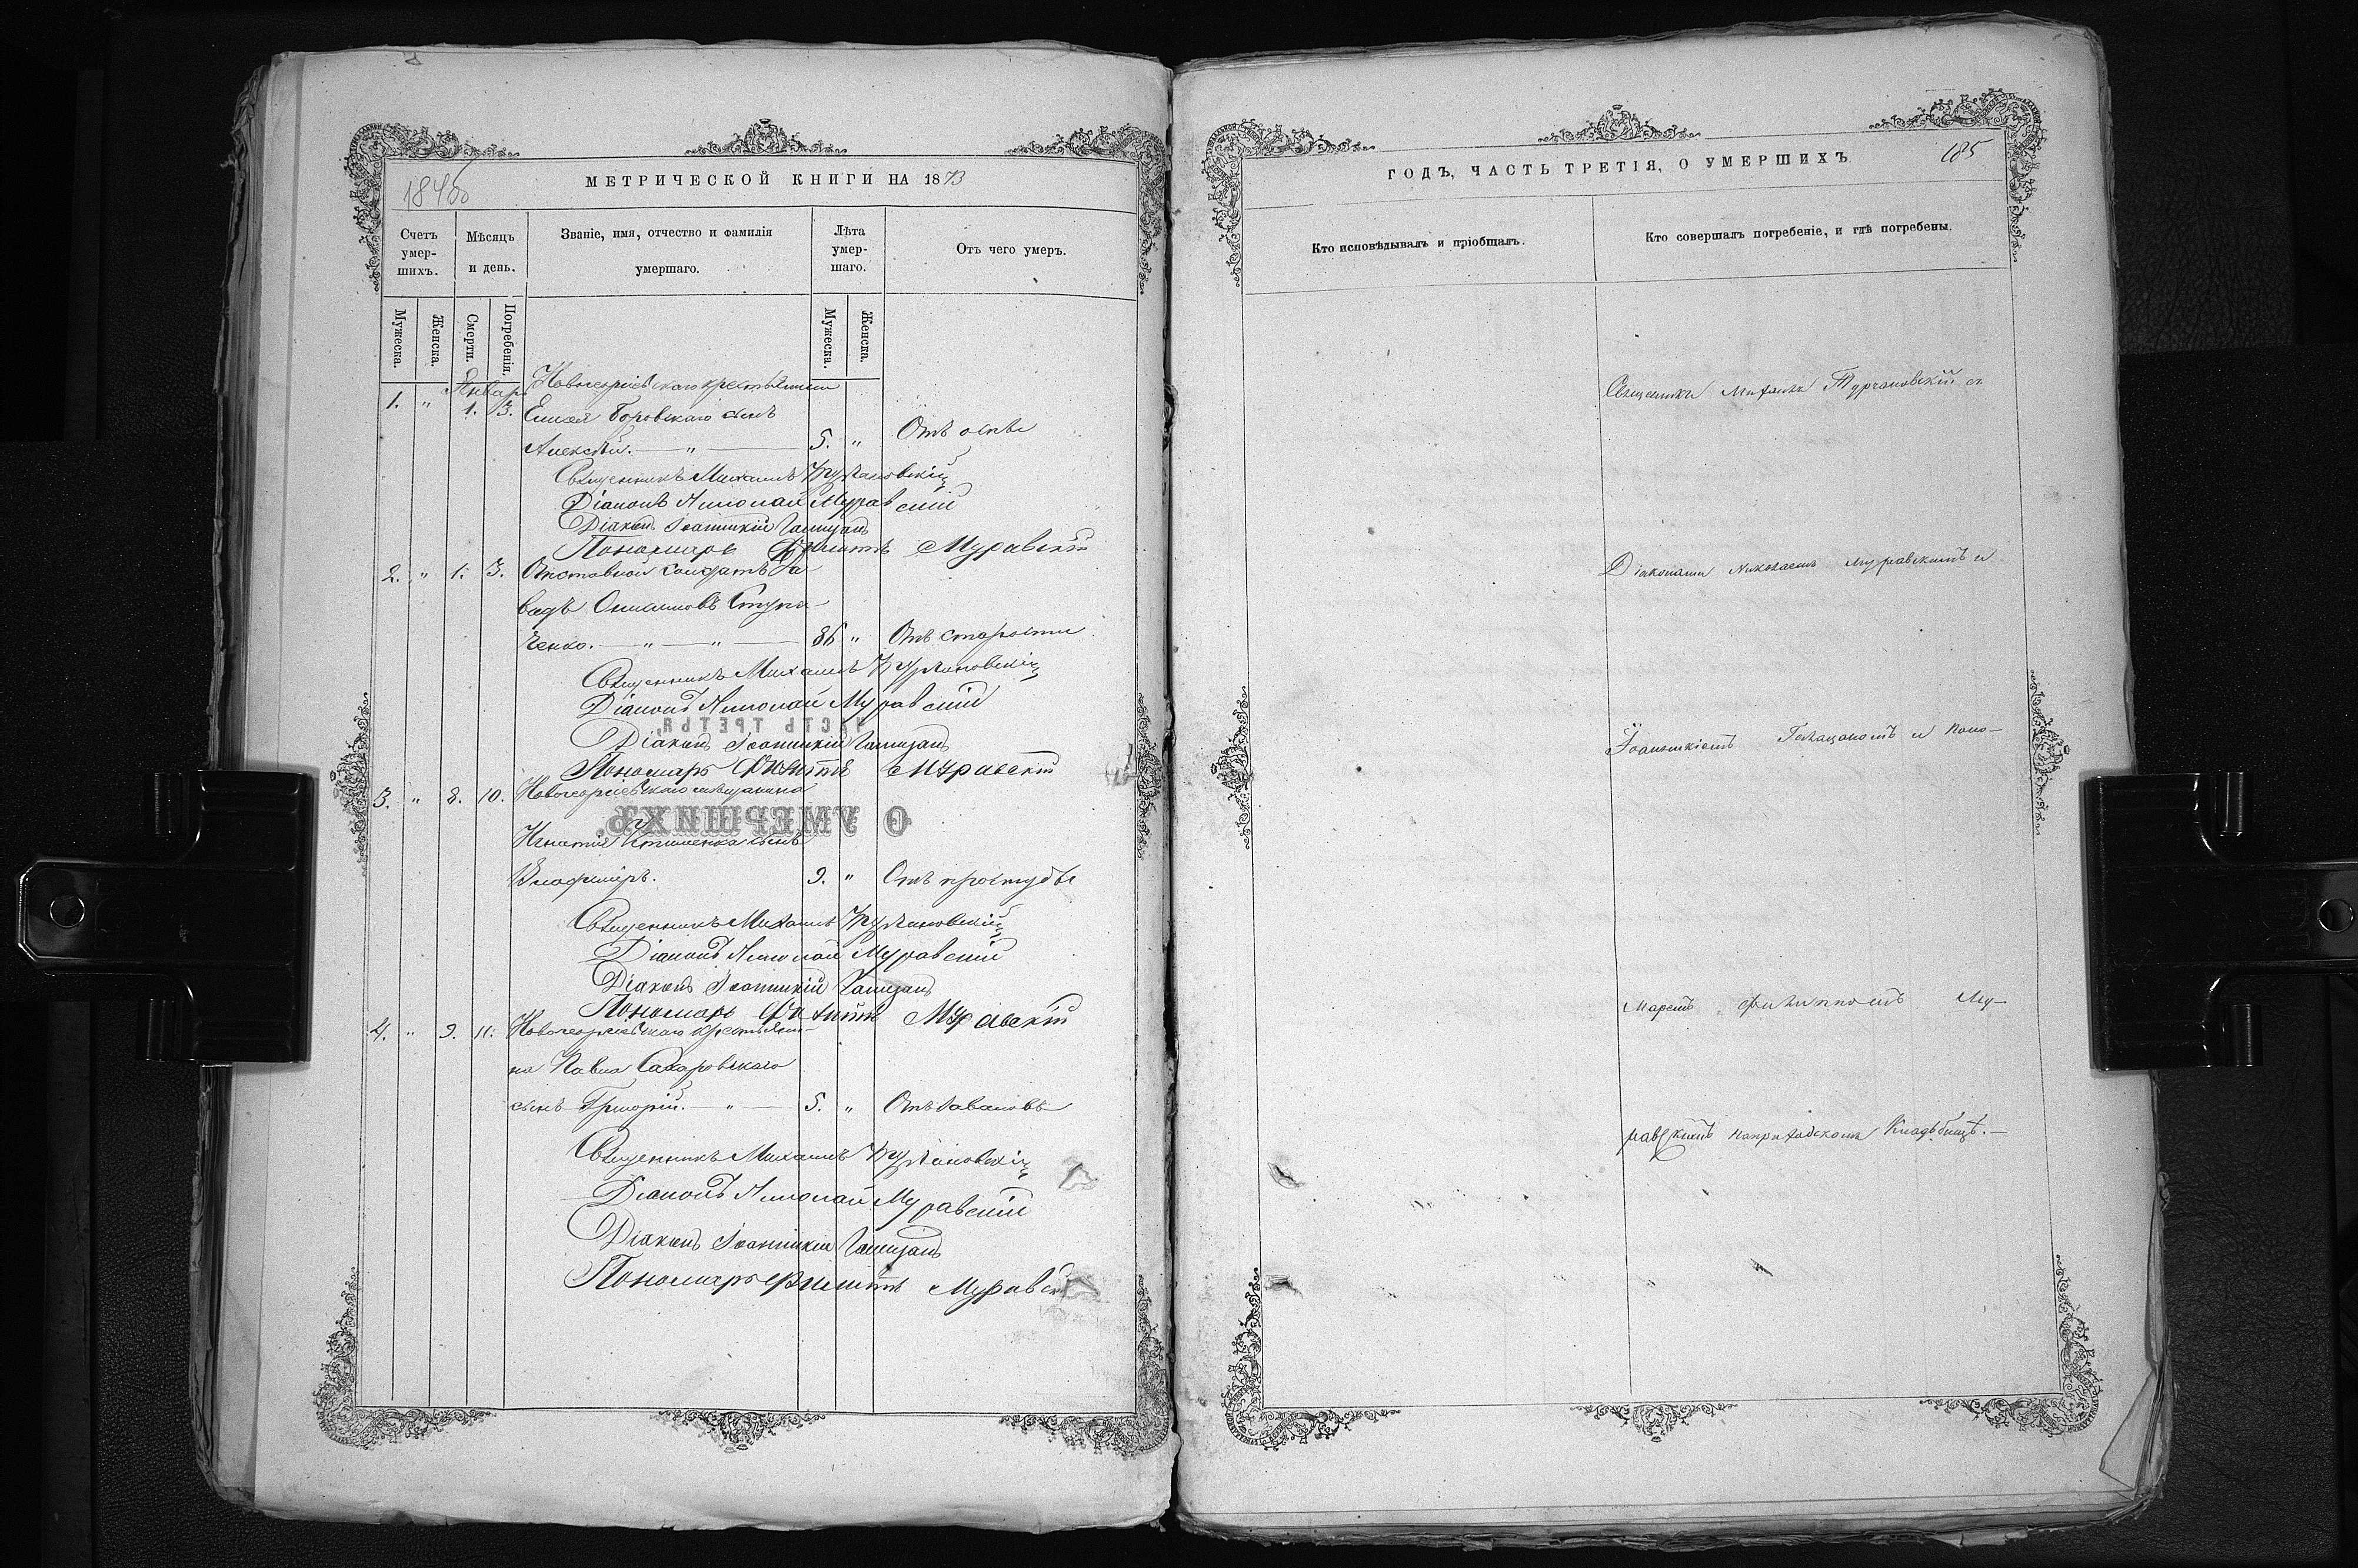 МЕТРИЧЕСКОЙ КНИГИ НА 1873
Счетъ умер-шихъ.
Мѣсяцъ и день.
Званіе, имя, отчество и фамилія умершаго.
Лѣта умер-шаго.
Отъ чего умеръ.
Мужеска.
Женска.
Смерти.
Погребенія.
Мужеска.
Женска.
Январь
Новогеоргіевскаго крестьянина
1. " 1. 3. Елисея Боровскаго сынъ
Алексѣй. — " — 5. " Отъ оспы
Священникъ Михаилъ Турчановскій
Діаконъ Николай Муравскій
Діаконъ Іоанникій Галицанъ
Пономарь Филиппъ Муравскій
2. " 1. 3. Отставной солдатъ Са
вадъ Ступа-
ченко. — " — " — 86 " Отъ старости
Священникъ Михаилъ Турчановскій
Діаконъ Николай Муравскій
ЧАСТЬ ТРЕТЬЯ,
Діаконъ Іоанникій Галицанъ
Пономарь Филиппъ Муравскій
3. " 8. 10. Новогеоргіевскаго мѣщанина
О УМЕРШИХЪ.
Игнатія сынъ
Владиміръ. 9. " Отъ простуды
Священникъ Михаилъ Турчановскій
Діаконъ Николай Муравскій
Діаконъ Іоанникій Галицанъ
Пономарь Филиппъ Муравскій
4. " 9. 11. Новогеоргіевскаго крестьяни-
на Павла Сахаровскаго
сынъ Григорій. — " — 5. "
Священникъ Михаилъ Турчановскій
Діаконъ Николай Муравскій
Діаконъ Іоанникій Галицанъ
Пономарь Филиппъ Муравскі
ГОДЪ, ЧАСТЬ ТРЕТІЯ, О УМЕРШИХЪ
185
Кто исповѣдывалъ и пріобщалъ.
Кто совершалъ погребеніе, и гдѣ погребены.
Священникъ Михаилъ Турчановскій съ
Діаконами Николаемъ Муравскимъ и
Іоанникіемъ Галицаномъ и поно-
маремъ Филиппомъ Му-
равскимъ на приходскомъ кладбищѣ.—